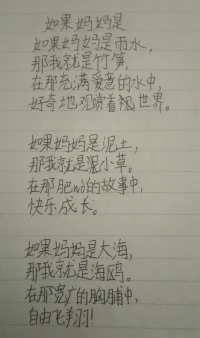 如果妈妈是
如果妈妈是雨水,
那我就是竹笋,
在那充满爱意的水中,
好奇地观赏着视世界。
如果妈妈是泥土,
那我就是泥小草。
在那肥wò的故事中,
快乐成长。
如果妈妈是大海,
那我就是海鸥。
在那宽广的胸脯中,
自由飞翔!